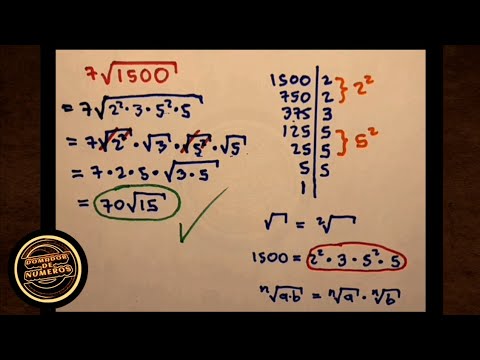 7√1500
= 7√2²·3·5²·5
= 7√2²·√3·√5²·√5
= 7·2·5·√3·5
= 70√15
1500 | 2
750 | 2 } 2²
375 | 3
125 | 5
25 | 5 } 5²
5 | 5
1
√ = ²√
1500 = 2²·3·5²·5
ⁿ√a·b = ⁿ√a·ⁿ√b
DOMADOR
DE
NÚMEROS